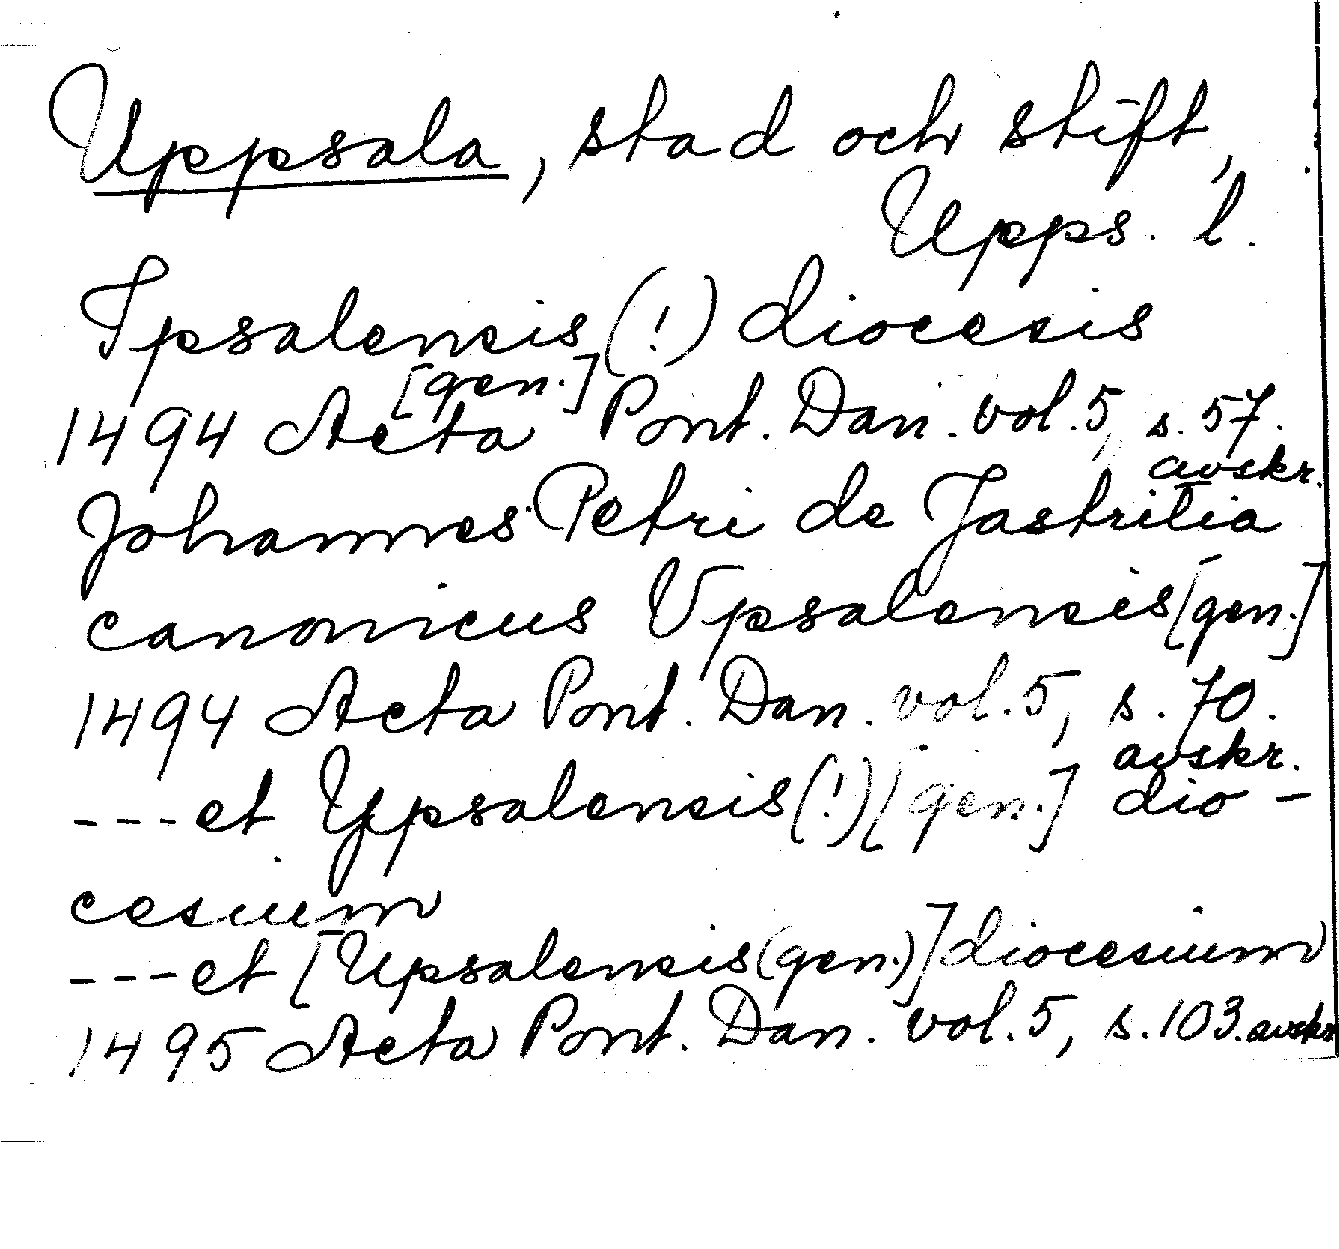 Uppsala, stad och stift,
Upps. l.
Ipsalensis (!) diocesis
[gen.]
1494 Acta Pont. Dan. vol. 5, s. 57.
avskr.
Johannes Petri de Jastritia
canonicus Vpsalensis [gen.]
1494 Acta Pont. Dan. vol. 5, s. 70.
avskr.
---et Ypsalensis (!) [gen.] dio-
cesium
---et [Upsalensis (gen.)] diocesium
1495 Acta Pont. Dan. vol. 5, s. 103. avskr